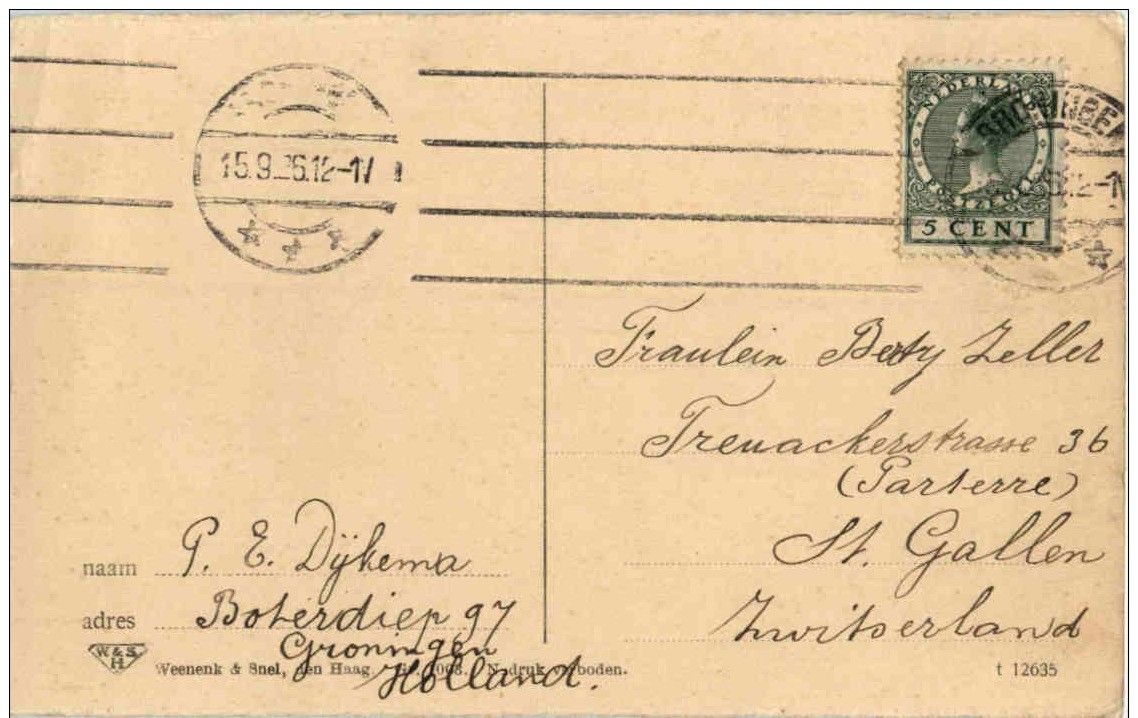 15.9. 6.12-1V
NEDERLAND
POSTZEGEL
5 CENT
GRONINGEN
Fraulein Berty Zeller
Treuackerstrasse 36
(Parterre)
St. Gallen
Zwitserland
naam P. E. Dijkema
adres Boterdiep 97
Groningen
Holland.
W & S
H
Weenenk & Snel, den Haag. Nadruk verboden.
t 12635